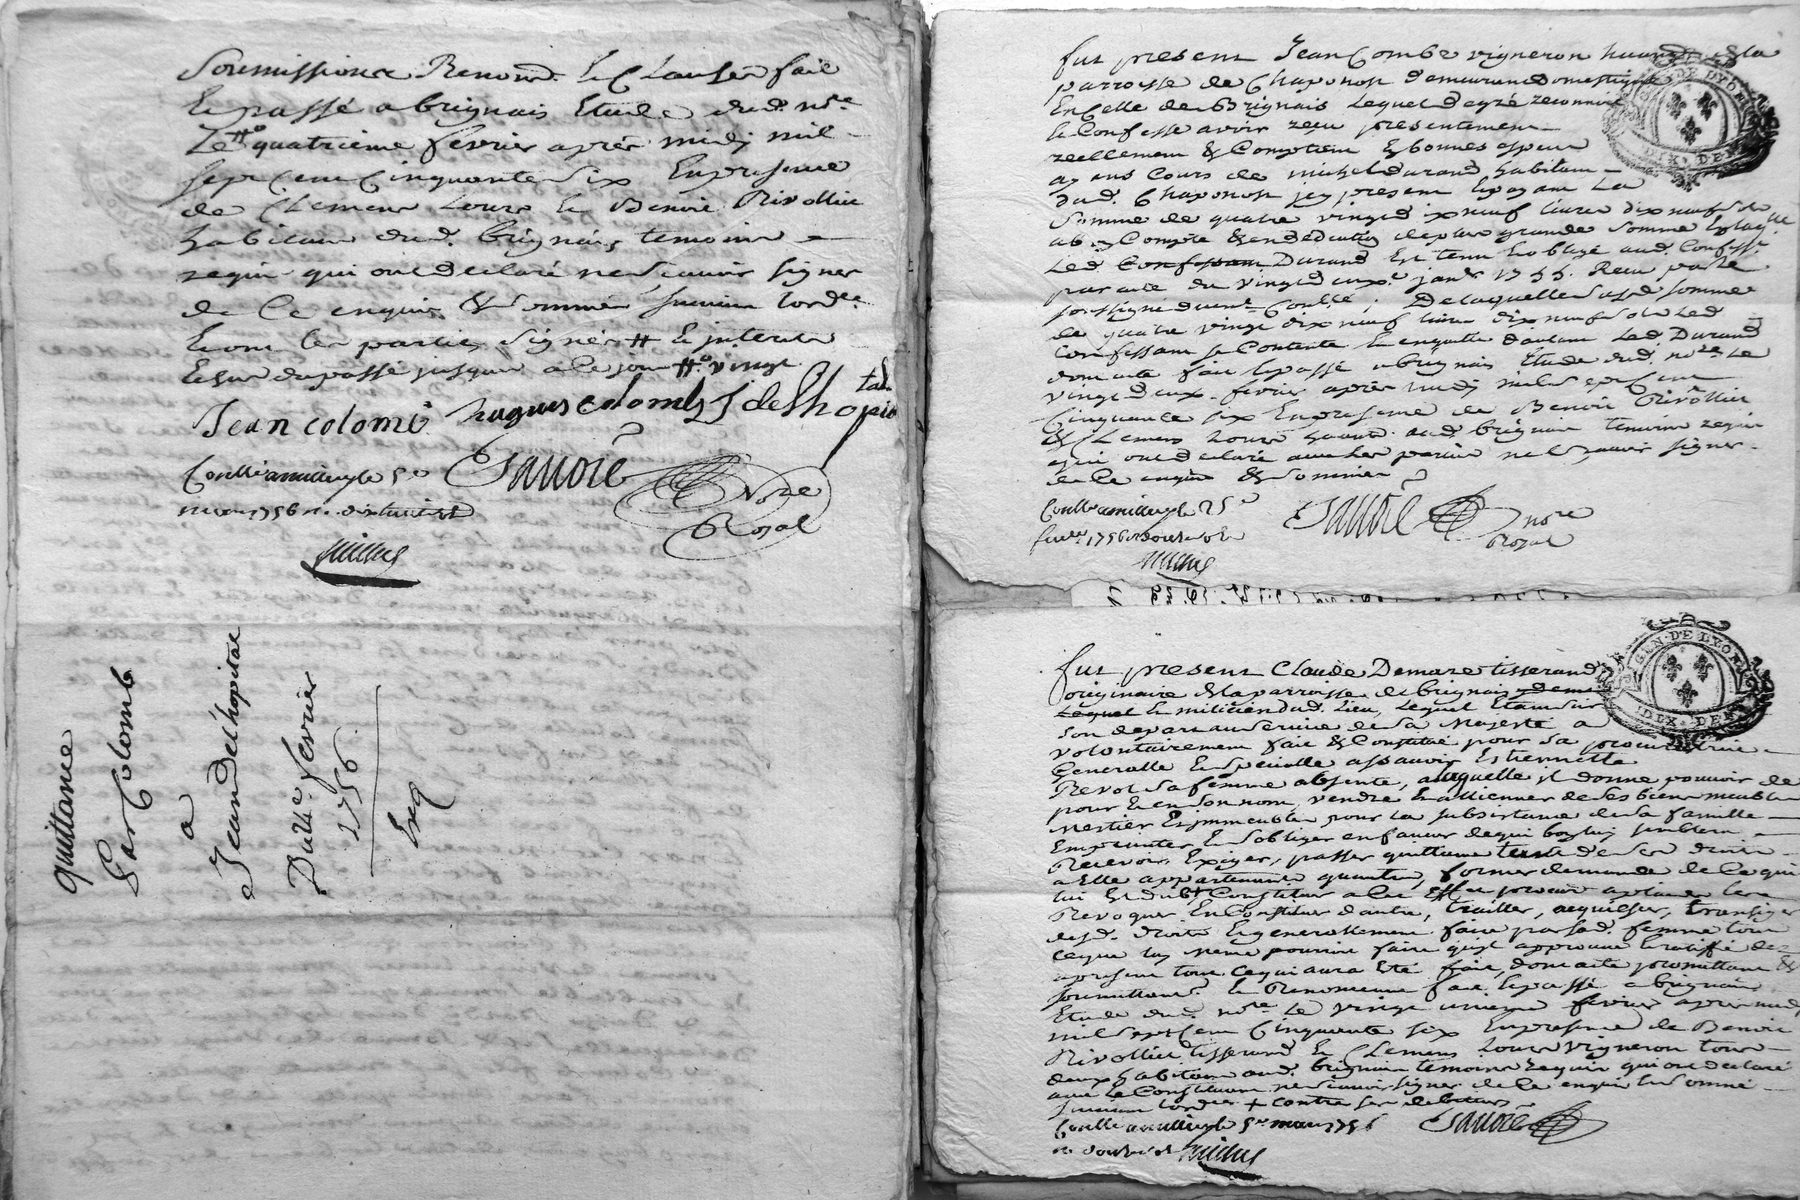 Soumissions Renon.on & Clauses fait
& passé a brignais Etude dud. nore
Le # quatrieme fevrier après midy mil
sept cent cinquante six En presence
de Clemens Lours & Benoit Rivollier
habitans dud. brignais temoins
requis qui ont declaré ne scavoir signer
de ce enquis & sommés suivant lord.ce
& ont les parties signés # & interets
echus du passé jusques a ce jour #o vingt
Jean colomb hugues colomb J delhopital
Conllé a millery le 5e Sauoie Nore
mars 1756 r. dix huit s. Royal
quittance
Par Colomb
a
Jean Delhopital
Du 4e fevrier
1756
Exp
fut present Jean Combe vigneron
parroisse de Chaponost demeurant domestique
En Celle de Brignais Lequel de gré reconnoit
& Confesse avoir reçu presentement
reellement & Comptant Es bonnes especes
ayans Cours de michel durand habitant
dud. Chaponost icy present & payant La
Somme de quatre vingt dix neuf livres dix neuf sols
a bon Compte & en deduction de plus grande Somme
Led. Confessant Durand Est tenu & obligé aud. Confessant
par acte du vingt deux janer 1755. Reçu par le
soussigné duement Conllé; De laquelle susd. somme
de quatre vingt dix neuf livres dix neuf sols Led.
Confessant se Contente & en quitte d'autant Led. Durand
dont acte fait & passé a brignais Etude dud. nore Le
vingt deux fevrier après midy mil sept Cent
Cinquante six En presence de Benoit Rivollier
& Clemens Lours habitans aud. brignais temoins requis
qui ont declaré avec les parties ne scavoir signer
de ce enquis & sommés
Conllé a millery le 25e Sauoie nore
fevrer 1756 r. douze sols Royal
fut present Claude Demare tisserand
originaire de la parroisse de brignais
Lequel & milicien dud. Lieu, Lequel Etant sur
son depart au service de Sa Majesté a
volontairement fait & Constitué pour Sa procuratrice
Generalle & Specialle assavoir Estiennette
Revol sa femme absente, a laquelle il donne pouvoir de
pour & en son nom vendre & allienner de ses biens meubles
& Immeubles pour la subsistance de sa famille
Emprunter & s'obliger en faveur de qui bon luy semblera
Recevoir, Exiger, passer quittance de ses droits
a Elle appartenants quenta, former demande de ce qui
lui Est du + Constituer a cet Effet procureur a plaider les
Revoquer En Constituer d'autres, traitter, acquiescer, transiger
desd. droits & generallement faire par sad. femme tout
ce que luy meme pourroit faire qu'il approuve & ratiffie des
apresent tout ce qui aura Eté fait, dont acte promettant &
soumettant & Renonceant fait & passé a brignais
Etude dud. nore Le vingt unieme fevrier après midy
mil sept Cent Cinquante six En presence de Benoit
Rivollier tisserand & Clemens Lours vigneron tous
deux habitans aud. brignais temoins requis qui ont declaré
avec le Constituant ne scavoir signer de ce enquis & sommé
suivant lord.ce + contre ses debiteurs
Conllé a millery le 5e mars 1756 Sauoie
r. douze sols
GEN. DE LYON
DIX. DEN.